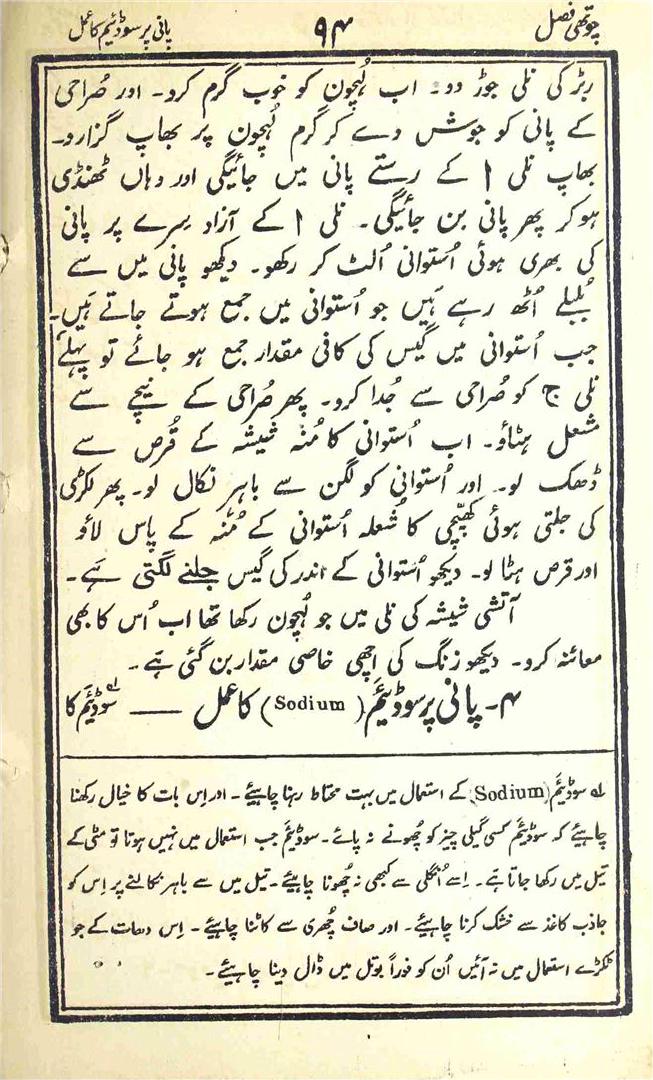 چوتھی فصل ۹۴ پانی پر سوڈیئم کا عمل
ربڑ کی نلی جوڑ دو۔ اب لُہچون کو خوب گرم کرو۔ اور صُراحی
کے پانی کو جوش دے کر گرم لُہچون پر بھاپ گزارو۔
بھاپ نلی ا کے رستے پانی میں جائیگی اور وہاں ٹھنڈی
ہو کر پھر پانی بن جائیگی۔ نلی ا کے آزاد سِرے پر پانی
کی بھری ہوئی اُستوانی اُلٹ کر رکھو۔ دیکھو پانی میں سے
بُلبلے اُٹھ رہے ہَیں جو اُستوانی میں جمع ہوتے جاتے ہَیں۔
جب اُستوانی میں گیس کی کافی مقدار جمع ہو جائے تو پہلے
نلی ج کو صُراحی سے جُدا کرو۔ پھر صُراحی کے نیچے سے
مشعل ہٹاؤ۔ اب اُستوانی کا مُنہ شیشہ کے قُرص سے
ڈھک لو۔ اور اُستوانی کو لگن سے باہر نکال لو۔ پھر لکڑی
کی جلتی ہوئی کھپّچی کا شُعلہ اُستوانی کے مُنْہ کے پاس لاؤ
اور قرص ہٹا لو۔ دیکھو اُستوانی کے اندر کی گیس جلنے لگتی ہَے۔
آتشی شیشہ کی نلی میں جو لُہچون رکھا تھا اب اُس کا بھی
معائنہ کرو۔ دیکھو زنگ کی اچھی خاصی مقدار بن گئی ہَے۔
۴۔ پانی پر سوڈیئم (Sodium) کا عمل — سوڈیئم لہ کا
لہ سوڈیئم (Sodium) کے استعمال میں بہت محتاط رہنا چاہیئے۔ اور اِس بات کا خیال رکھنا
چاہیئے کہ سوڈیئم کسی گیلی چیز کو چُھونے نہ پائے۔ سوڈیئم جب استعمال میں نہیں ہوتا تو مٹی کے
تیل میں رکھا جاتا ہَے۔ اِسے اُنگلی سے کبھی نہ چُھونا چاہیئے۔ تیل میں سے باہر نکالنے پر اِس کو
جاذب کاغذ سے خشک کرنا چاہیئے۔ اور صاف چُھری سے کاٹنا چاہیئے۔ اِس دھات کے جو
ٹکڑے استعمال میں نہ آئیں اُن کو فوراً بوتل میں ڈال دینا چاہیئے۔